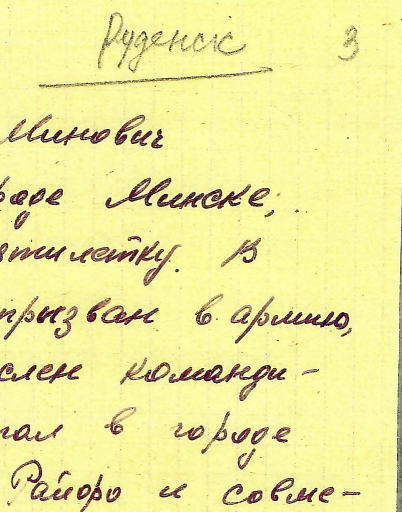 Руденск 3
Минович
роде Минске,
ятилетку. В
призван в армию,
слен команди-
гал в городе
Райоро и совме-